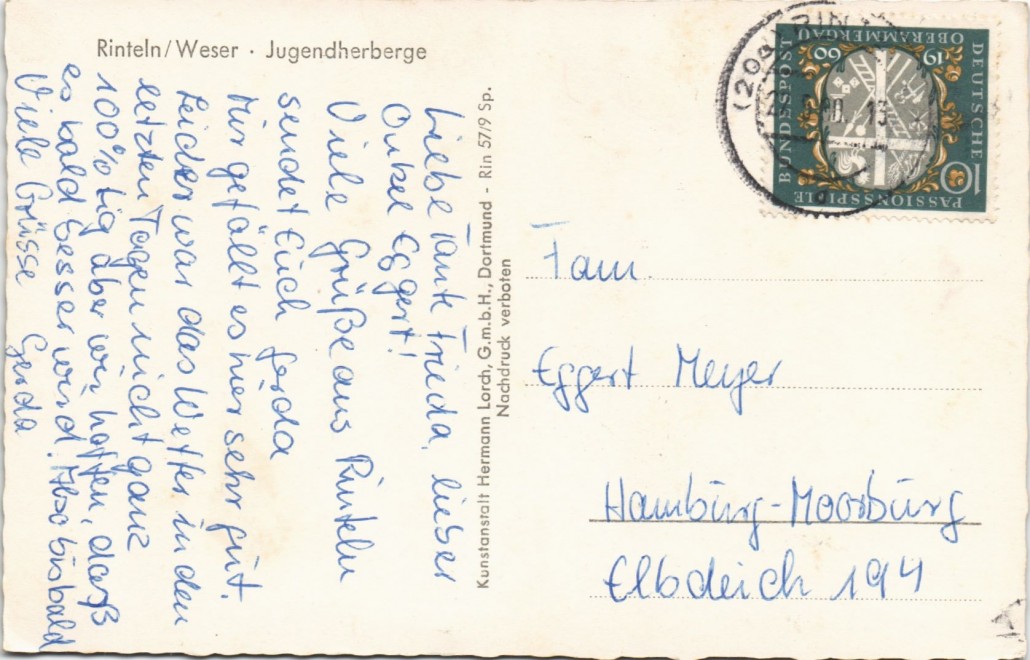 Rinteln/Weser · Jugendherberge
Liebe Tante Frieda, lieber
Onkel Eggert!
Viele Grüße aus Rinteln
sendet Euch Gerda
Mir gefällt es hier sehr gut.
Leider war das Wetter in den
letzten Tagen nicht ganz
100%tig aber wir hoffen, daß
es bald besser wird. Also bis bald
Viele Grüsse Gerda
Kunstanstalt Hermann Lorch, G.m.b.H., Dortmund - Rin 57/9 Sp.
Nachdruck verboten
DEUTSCHE
BUNDESPOST
OBERAMMERGAU
1960
10
PASSIONSSPIELE
Fam.
Eggert Meyer
Hamburg-Moorburg
Elbdeich 194